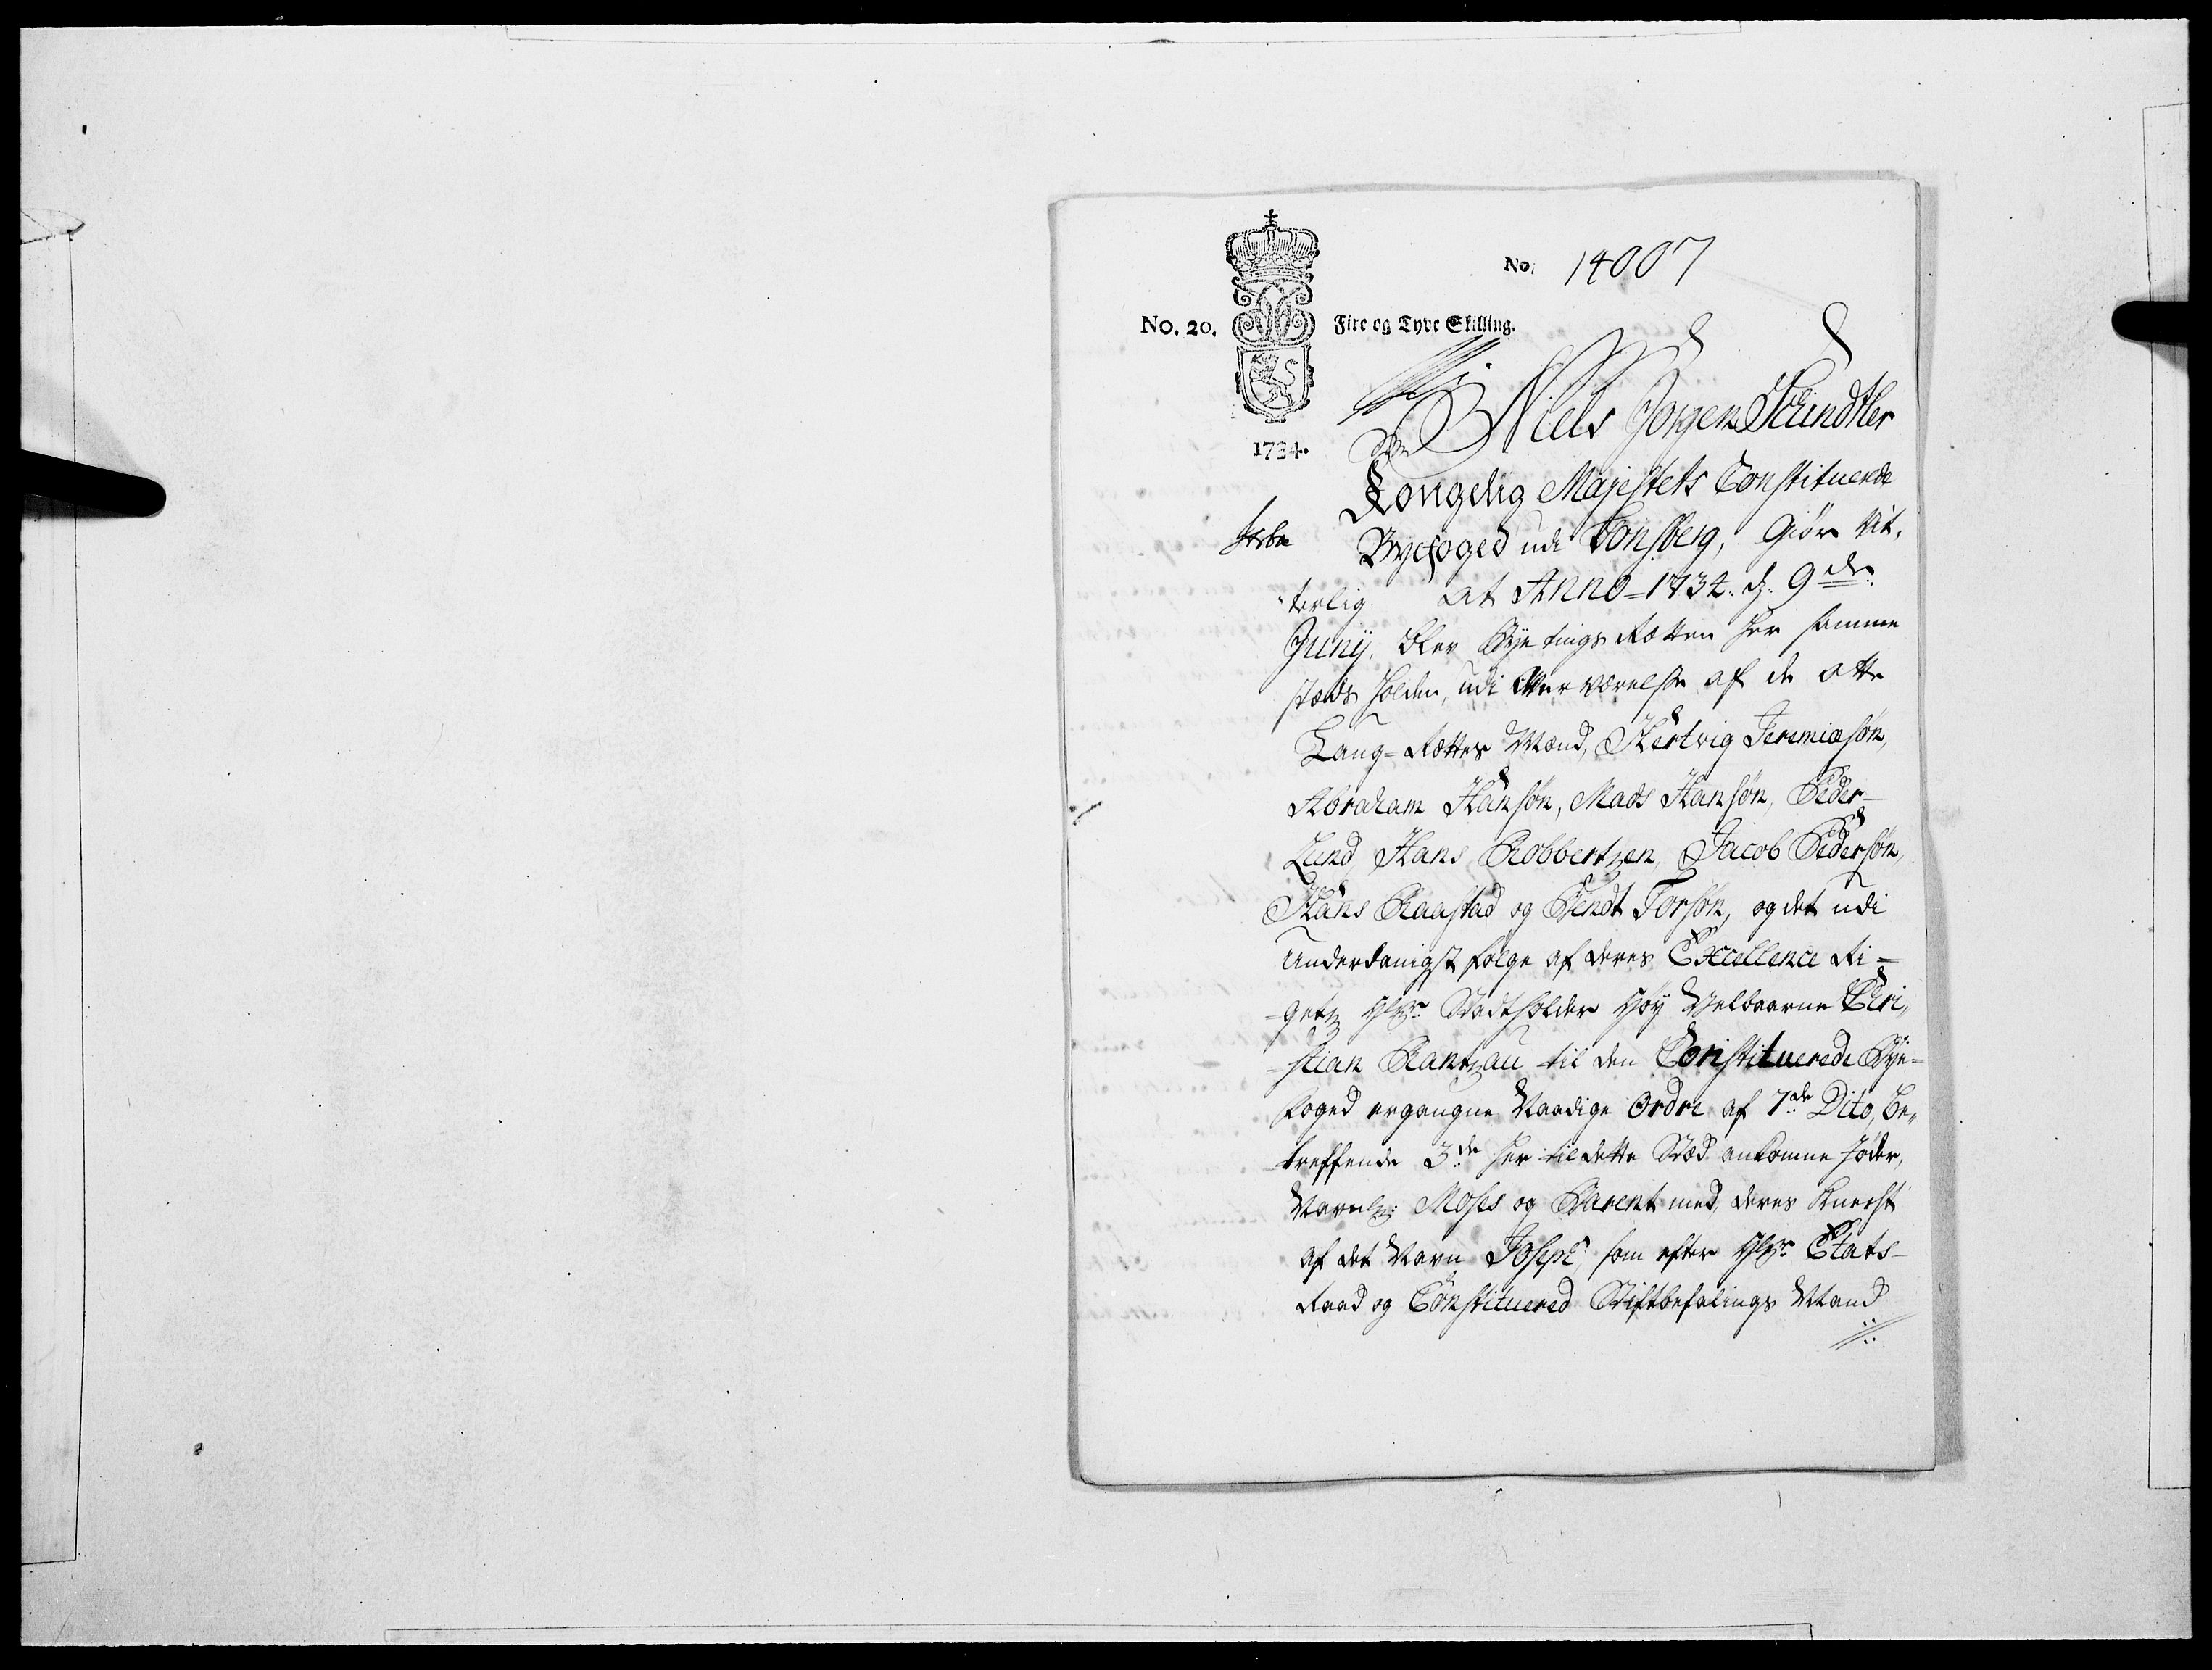 No. 14007
No. 20. Fire og Tyve Skilling.
1734.
Niels Jørgen
Kongelig Majestets Constituerede
Byefoged udi Tonsberg, Giør Vit,
terlig at Anno 1734. d. 9de
Junij, blev Bye tings Retten her samme
stæds holden, udi Overværelse af de otte
Laug-Rettes Mænd, Hertvig Jeremiæsøn,
Abraham Hansøn, Mads Hansøn, Peder
Lund, Hans Robbertzen, Jacob Pedersøn,
Hans Raastad og Bendt Torsøn, og det udi
Underdanigst følge af deres Excellence Ri-
getz Hr Stadtholder Høy Velbaarne Chri,,
stian Rantzau til den Constituerede Bye-
foged ergangne Naadige Ordre af 7de Dito, be,,
treffende 3de her til dette Stæd ankomne Jøder,
Navnlig: Moses og Barent med deres Knecht
af det Navn Joseph, som efter Hr Etats-
Raad og Constituered Stiftbefalings Mand